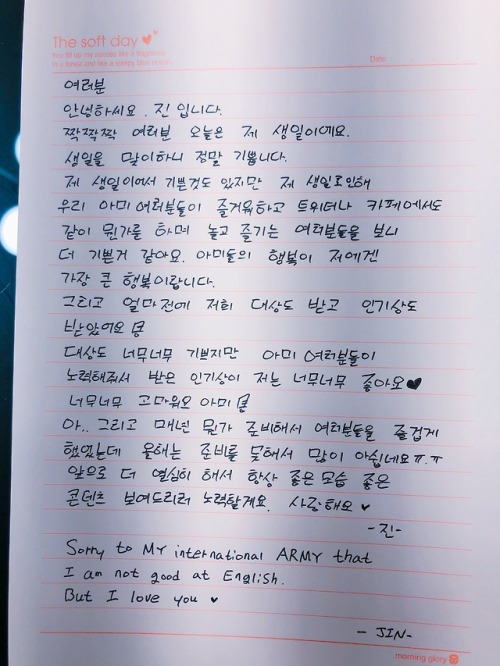 The soft day
Date
여러분
안녕하세요. 진 입니다.
짝짝짝 여러분 오늘은 제 생일이에요.
생일을 맞이하니 정말 기쁩니다.
제 생일이여서 기쁜것도 있지만 제 생일로인해
우리 아미 여러분들이 즐거워하고 트위터나 카페에서도
같이 뭔가를 하며 놀고 즐기는 여러분들을 보니
더 기쁜거 같아요. 아미들의 행복이 저에겐
가장 큰 행복이랍니다.
그리고 얼마전에 저희 대상도 받고 인기상도
받았어요
대상도 너무너무 기쁘지만 아미 여러분들이
노력해줘서 받은 인기상이 저는 너무너무 좋아요♥
너무너무 고마워요 아미
아.. 그리고 매년 뭔가 준비해서 여러분들을 즐겁게
했었는데 올해는 준비를 못해서 많이 아쉽네요ㅠ.ㅠ
앞으로 더 열심히 해서 항상 좋은 모습 좋은
콘텐츠 보여드리려 노력할게요. 사랑해요♥
-진-
Sorry to MY international ARMY that
I am not good at English.
But I love you ♥
- JIN-
morning glory